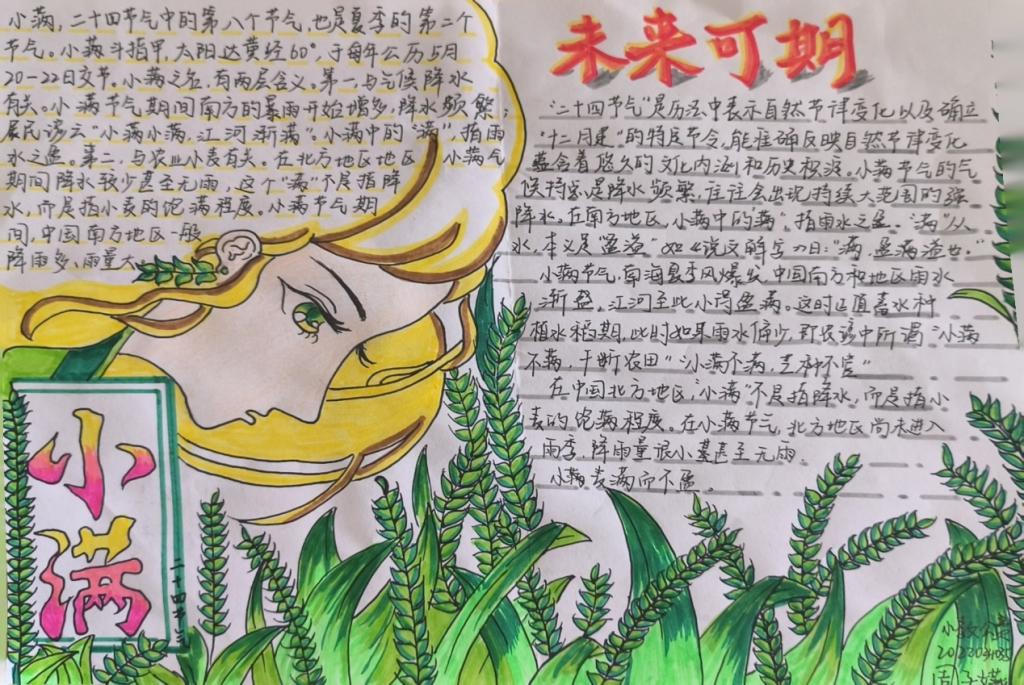 小满，二十四节气中的第八个节气，也是夏季的第二个
节气。小满斗指甲，太阳达黄经60°，于每年公历5月
20-22日交节。小满之名，有两层含义。第一，与气候降水
有关。小满节气期间南方的暴雨开始增多，降水频繁；
居民谚云"小满小满，江河渐满"。小满中的"满"，指雨
水之盈。第二，与农业小麦有关。在北方地区地区，小满气
期间降水较少甚至无雨，这个"满"不是指降
水，而是指小麦的饱满程度。小满节气期
间，中国南方地区一般
降雨多、雨量大。
小满
二十四节气
未来可期
"二十四节气"是历法中表示自然节律变化以及确立
"十二月建"的特定节令，能准确反映自然节律变化
蕴含着悠久的文化内涵和历史积淀。小满节气的气
候特点是降水频繁，往往会出现持续大范围的强
降水。在南方地区，小满中的"满"，指雨水之盈。"满"从
水，本义是"盈溢"如《说文解字》曰："满，盈满溢也。"
小满节气，南海夏季风爆发，中国南方和地区雨水
渐盈。江河至此小得盈满。这时正值蓄水种
植水稻期，此时如果雨水偏少，即农谚中所谓"小满
不满，干断农田""小满不满，芒种不管"
在中国北方地区，"小满"不是指降水，而是指小
麦的饱满程度。在小满节气，北方地区尚未进入
雨季，降雨量很小甚至无雨。
小满表满而不盈。